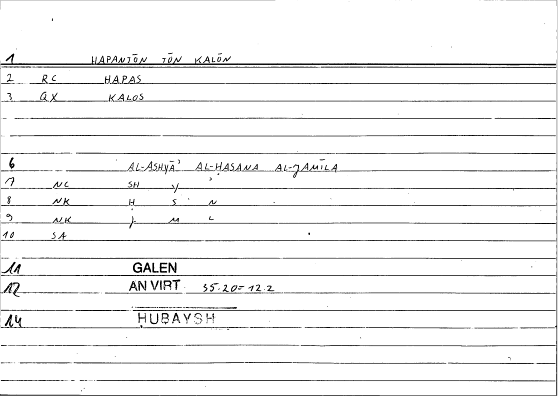 1 HAPANTŌN TŌN KALŌN
2 RC HAPAS
3 QX KALOS
6 AL-ASHYĀʾ AL-ḤASANA AL-ǦAMĪLA
7 NC SH Y ʾ
8 NK Ḥ S N
9 NK Ǧ M L
10 SA
11 GALEN
12 AN VIRT 35.20=12.2
14 ḤUBAYSH